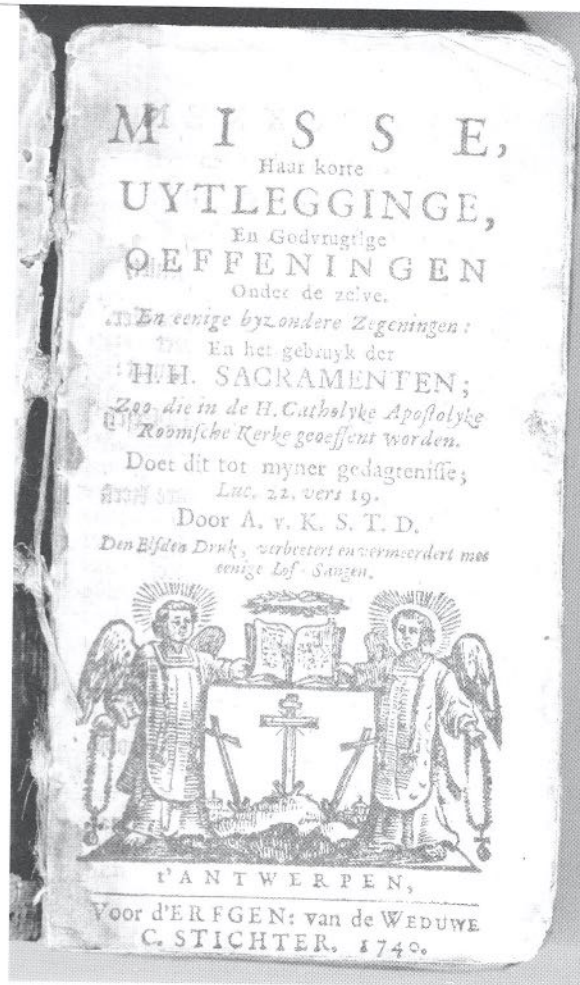 MISSE,
Haar korte
UYTLEGGINGE,
En Godvrugtige
OEFFENINGEN
Onder de zelve.
En eenige byzondere Zegeningen:
En het gebruyk der
H.H. SACRAMENTEN;
Zoo die in de H. Catholyke Apoſtolyke
Roomſche Kerke geoeffent worden.
Doet dit tot myner gedagteniſſe;
Luc. 22. vers 19.
Door A. v. K. S. T. D.
Den Elfden Druk, verbeetert en vermeerdert met
eenige Lof-Sangen.
t'ANTWERPEN,
Voor d'ERFGEN: van de WEDUWE
C. STICHTER. 1740.